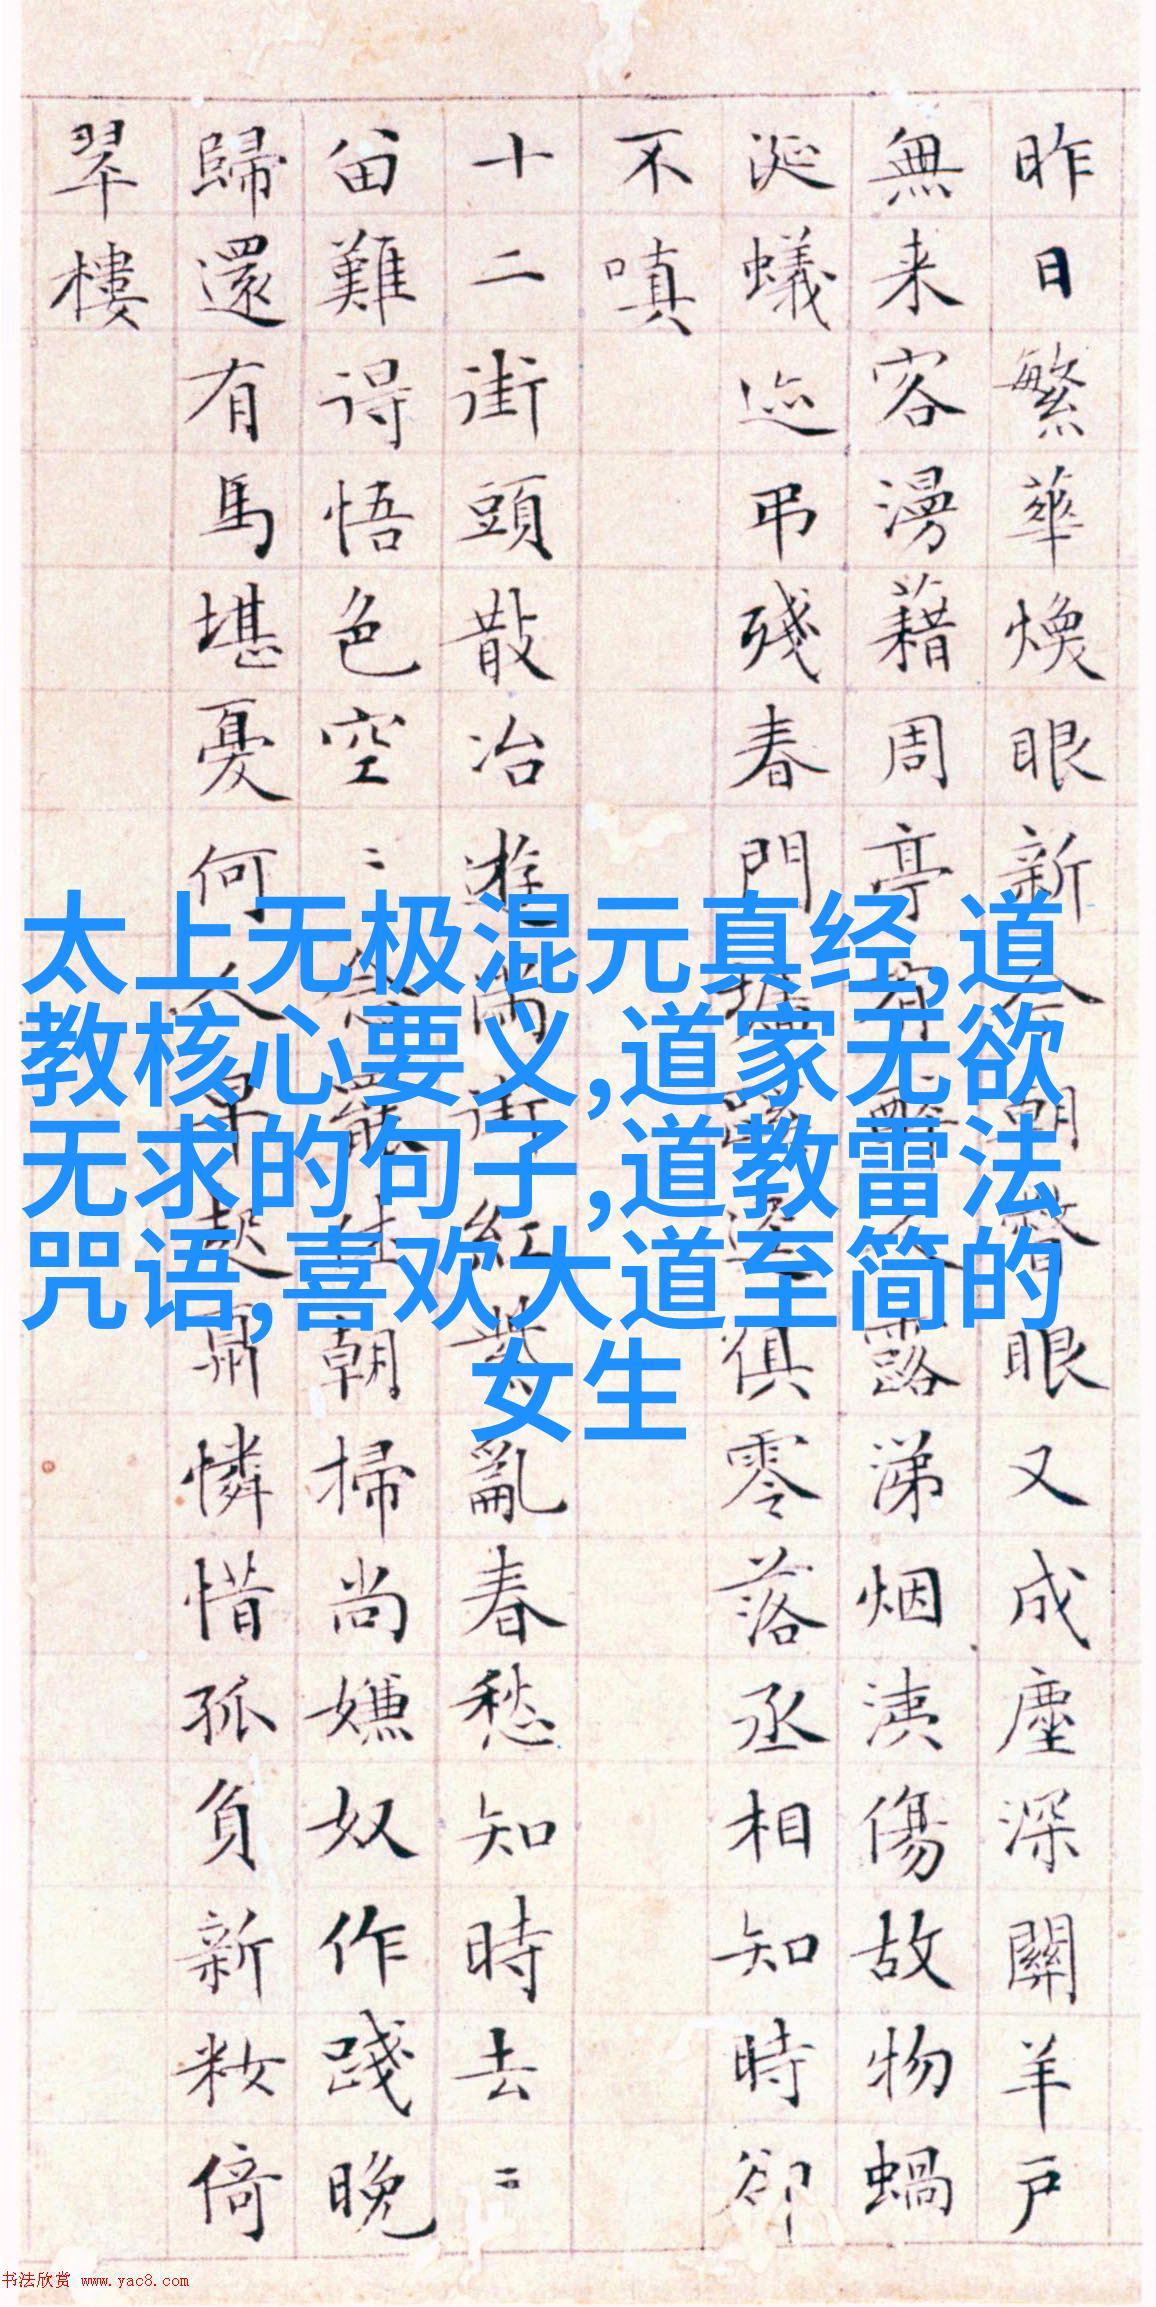 昨日繁華煥眼新今朝瞥眼又成塵深關羊戶
無来客漫藉周亭有露涕烟洟傷故物蝸
涎蟻迹弔殘春門墻逕俱零落丞相知時卻
不嗔
十二街頭散冶遊滿街紅紫亂春愁知時去〻
難得悟色空〻罷朝掃尚嫌奴作踐晚
歸還有馬堪憂何人早起肅憐惜孤負新妝倚
翠樓
太上无极混元真经,道
教核心要义,道家无欲
无求的句子,道教雷法
咒语,喜欢大道至简的
女生
书法欣赏 www.yac8.com